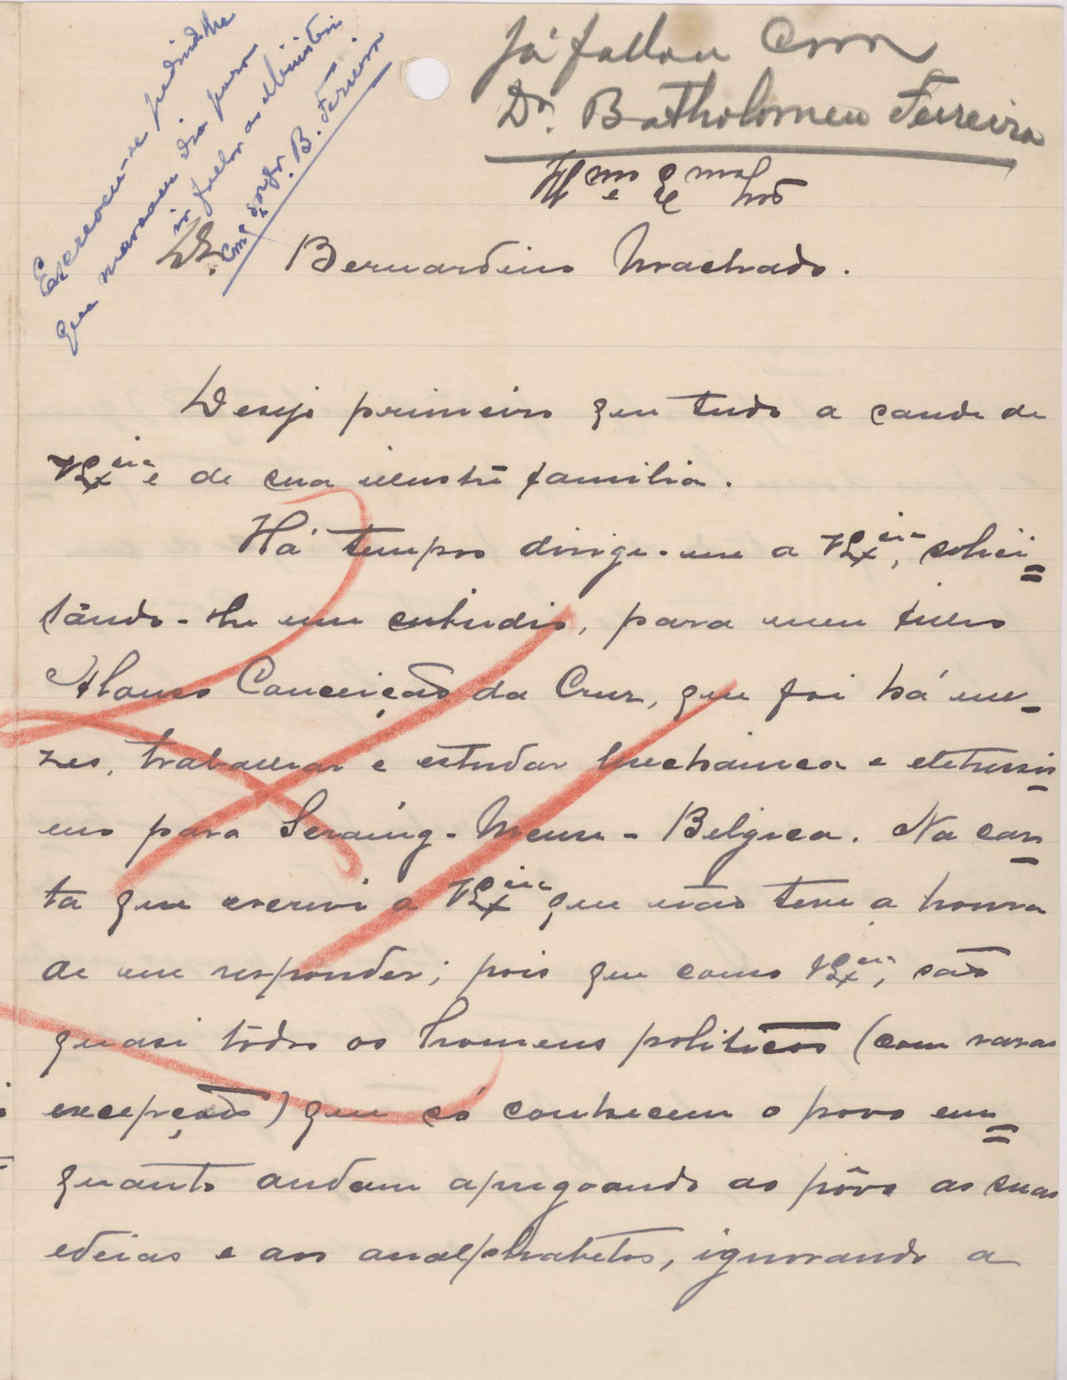 Já fallou com
Dr. Bartholomeu Ferreira
Escreveu-se pedindo-lhe
que marcasse dia para
ir fallar ao Ministerio
com o Snr. B. Ferreira
Illmo e Exmo Snr
Dr. Bernardino Machado.
Desejo primeiro que tudo a saude de
V Excia e de sua illustre familia.
Há tempos dirigi-me a V Excia, solici=
tando-lhe um subsidio, para meu filho
Conceição da Cruz, que foi há me-
zes, trabalhar e estudar mechanica e eletrecis-
mo para Seraing-Meuse-Belgica. Na car-
ta que escrevi a V Excia que não teve a honra
de me responder; pois que como V Excia, são
quasi tôdos os homens politicos (com raras
excepções) que só conhecem o povo em=
quanto andam apregoando ao pôvo as suas
edeias e aos analphabetos, ignorando a